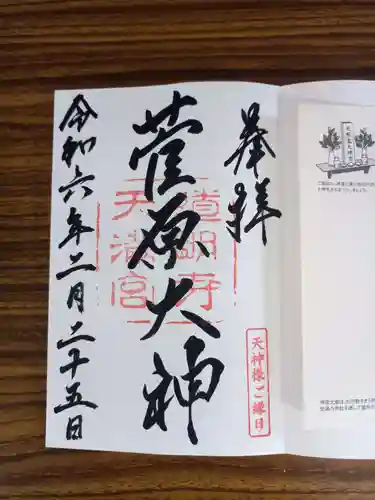 奉拝
天神様ご縁日
菅原大神
道明寺
天満宮
令和六年二月二十五日